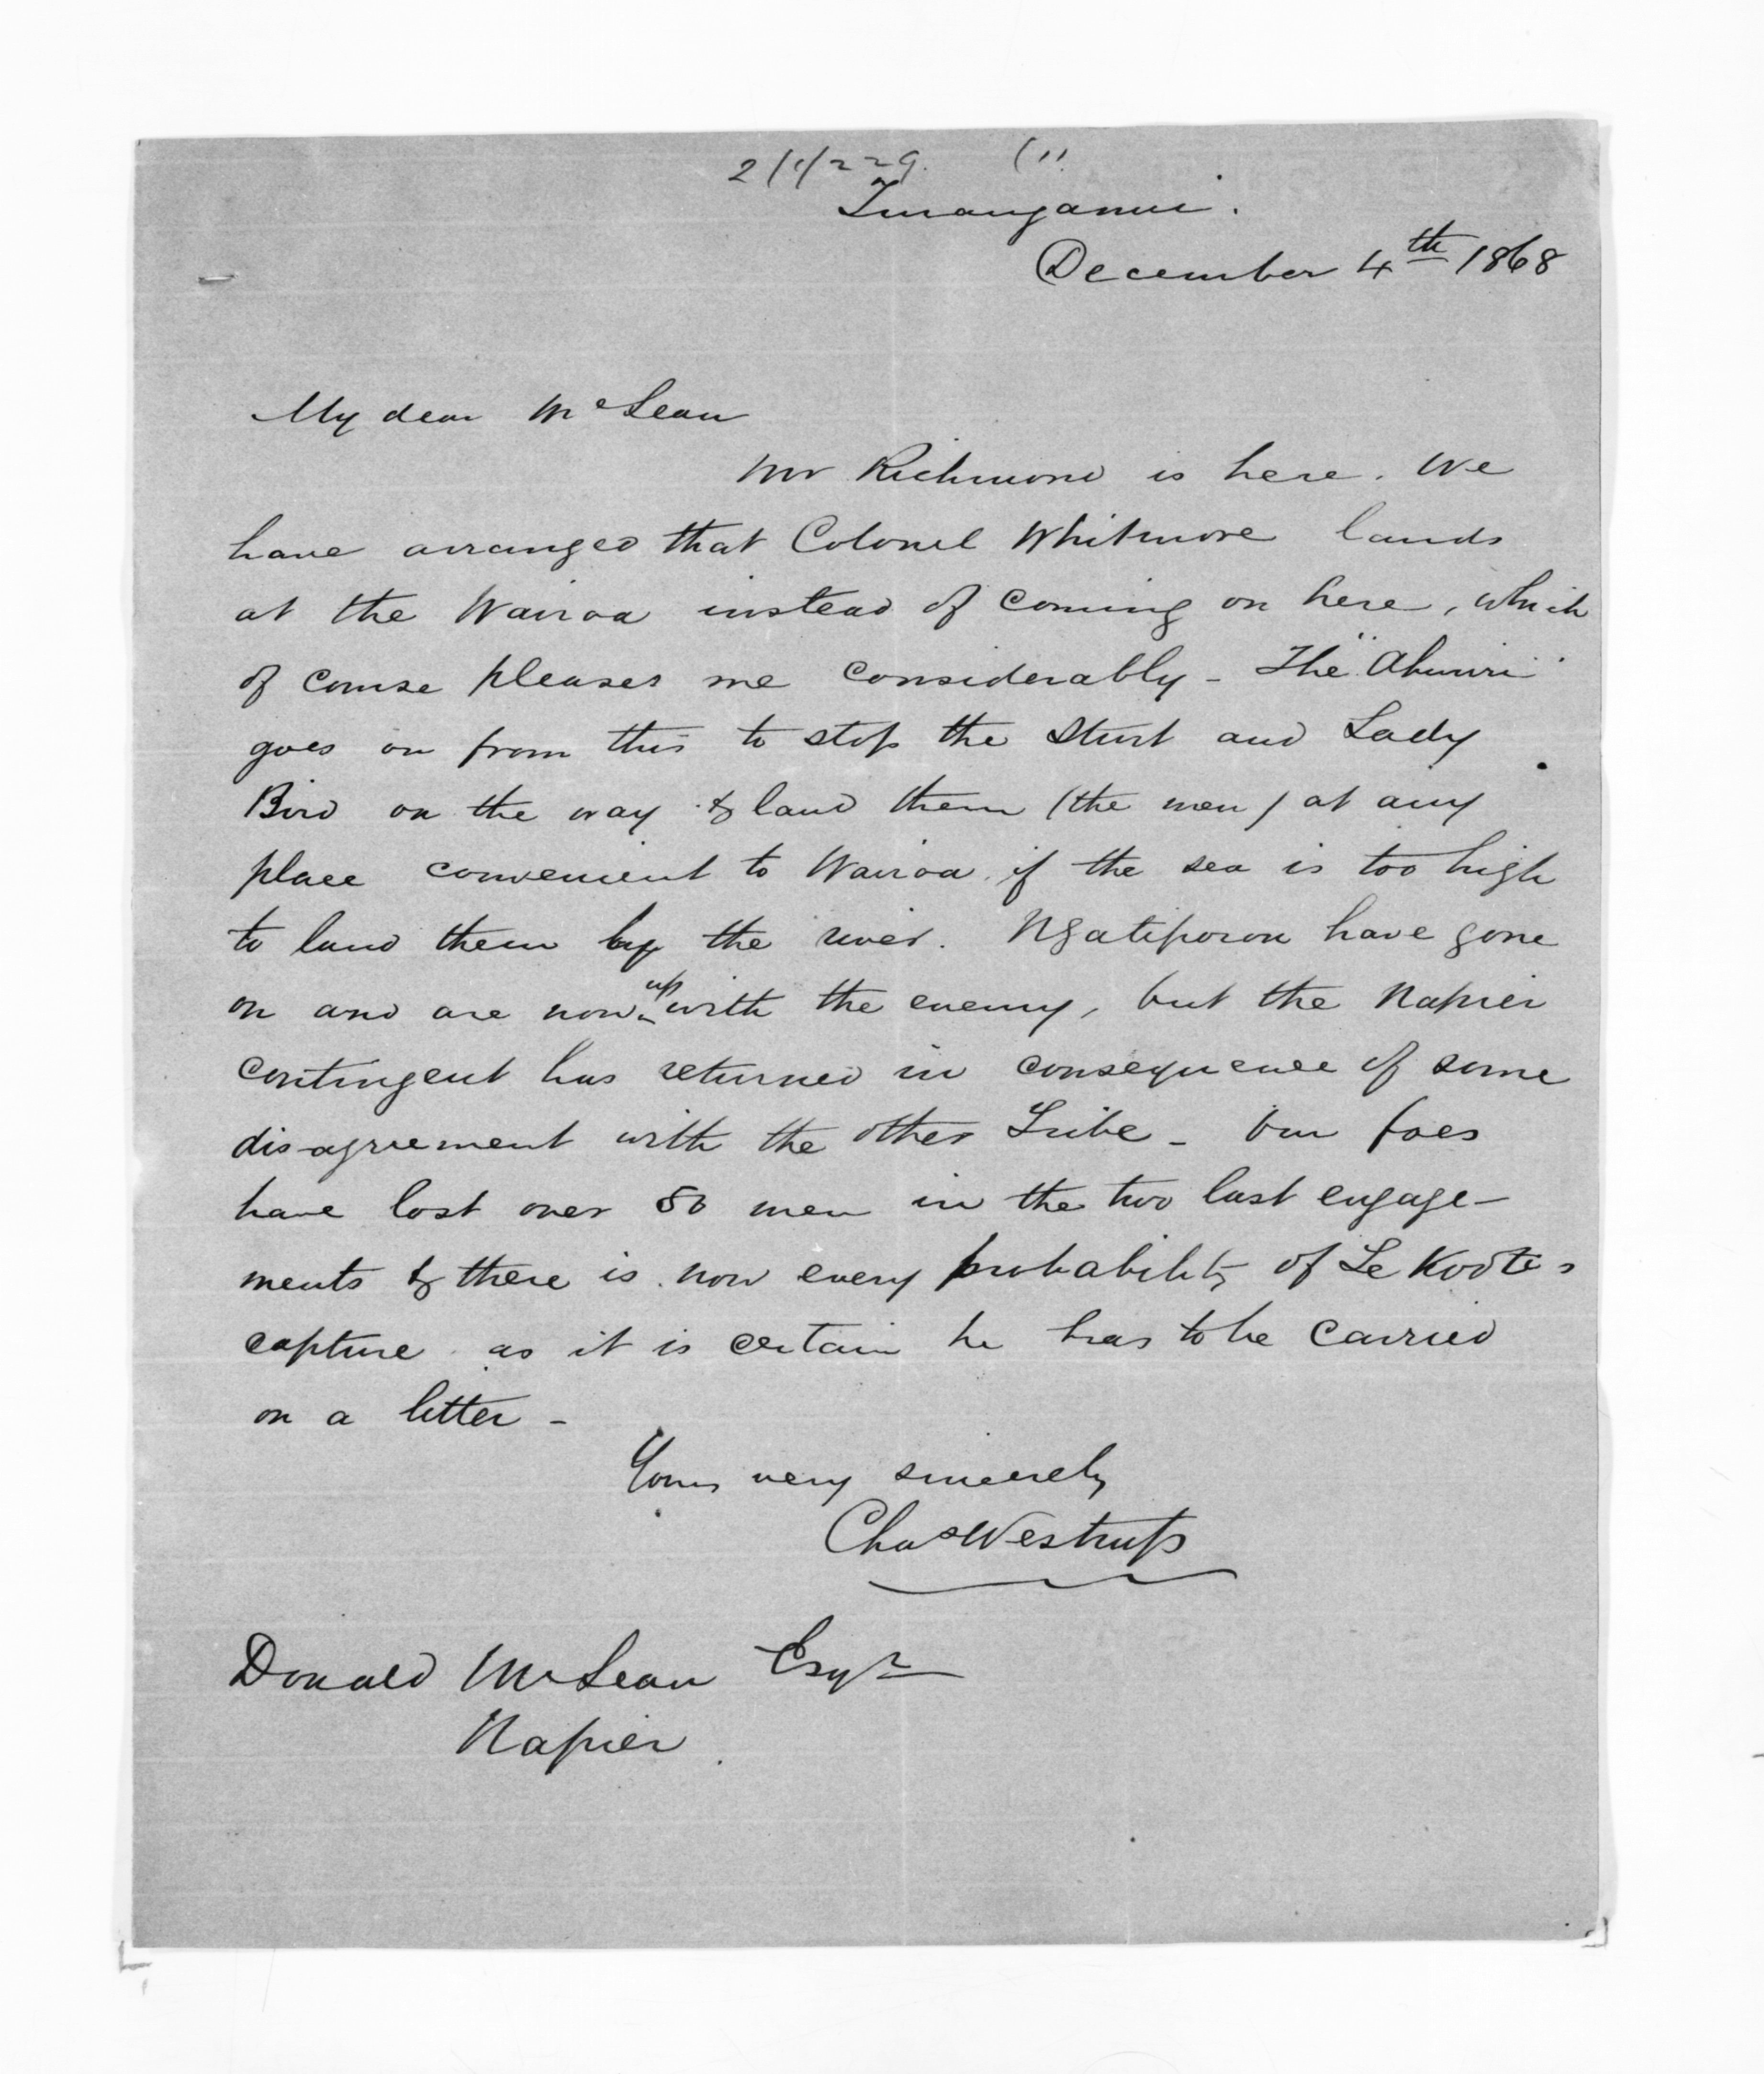 2/1/229. (11
Turanganui.
December 4th 1868
My dear McLean
Mr Richmond is here. We
have arranged that Colonel Whitmore lands
at the Wairoa instead of coming on here, which
of course pleases me considerably - The "Ahuriri"
goes on from this to stop the Sturt and Lady
Bird on the way & land them (the men) at any
place convenient to Wairoa if the sea is too high
to land them by the river. Ngatiporou have gone
on and are now up with the enemy, but the Napier
contingent has returned in consequence of some
disagreement with the other Tribe - Our foes
have lost over 50 men in the two last engage-
ments & there is now every probability of Te Kooti's
capture as it is certain he has to be carried
on a litter -
Yours very sincerely
Chas Westrup
Donald McLean Esqr
Napier